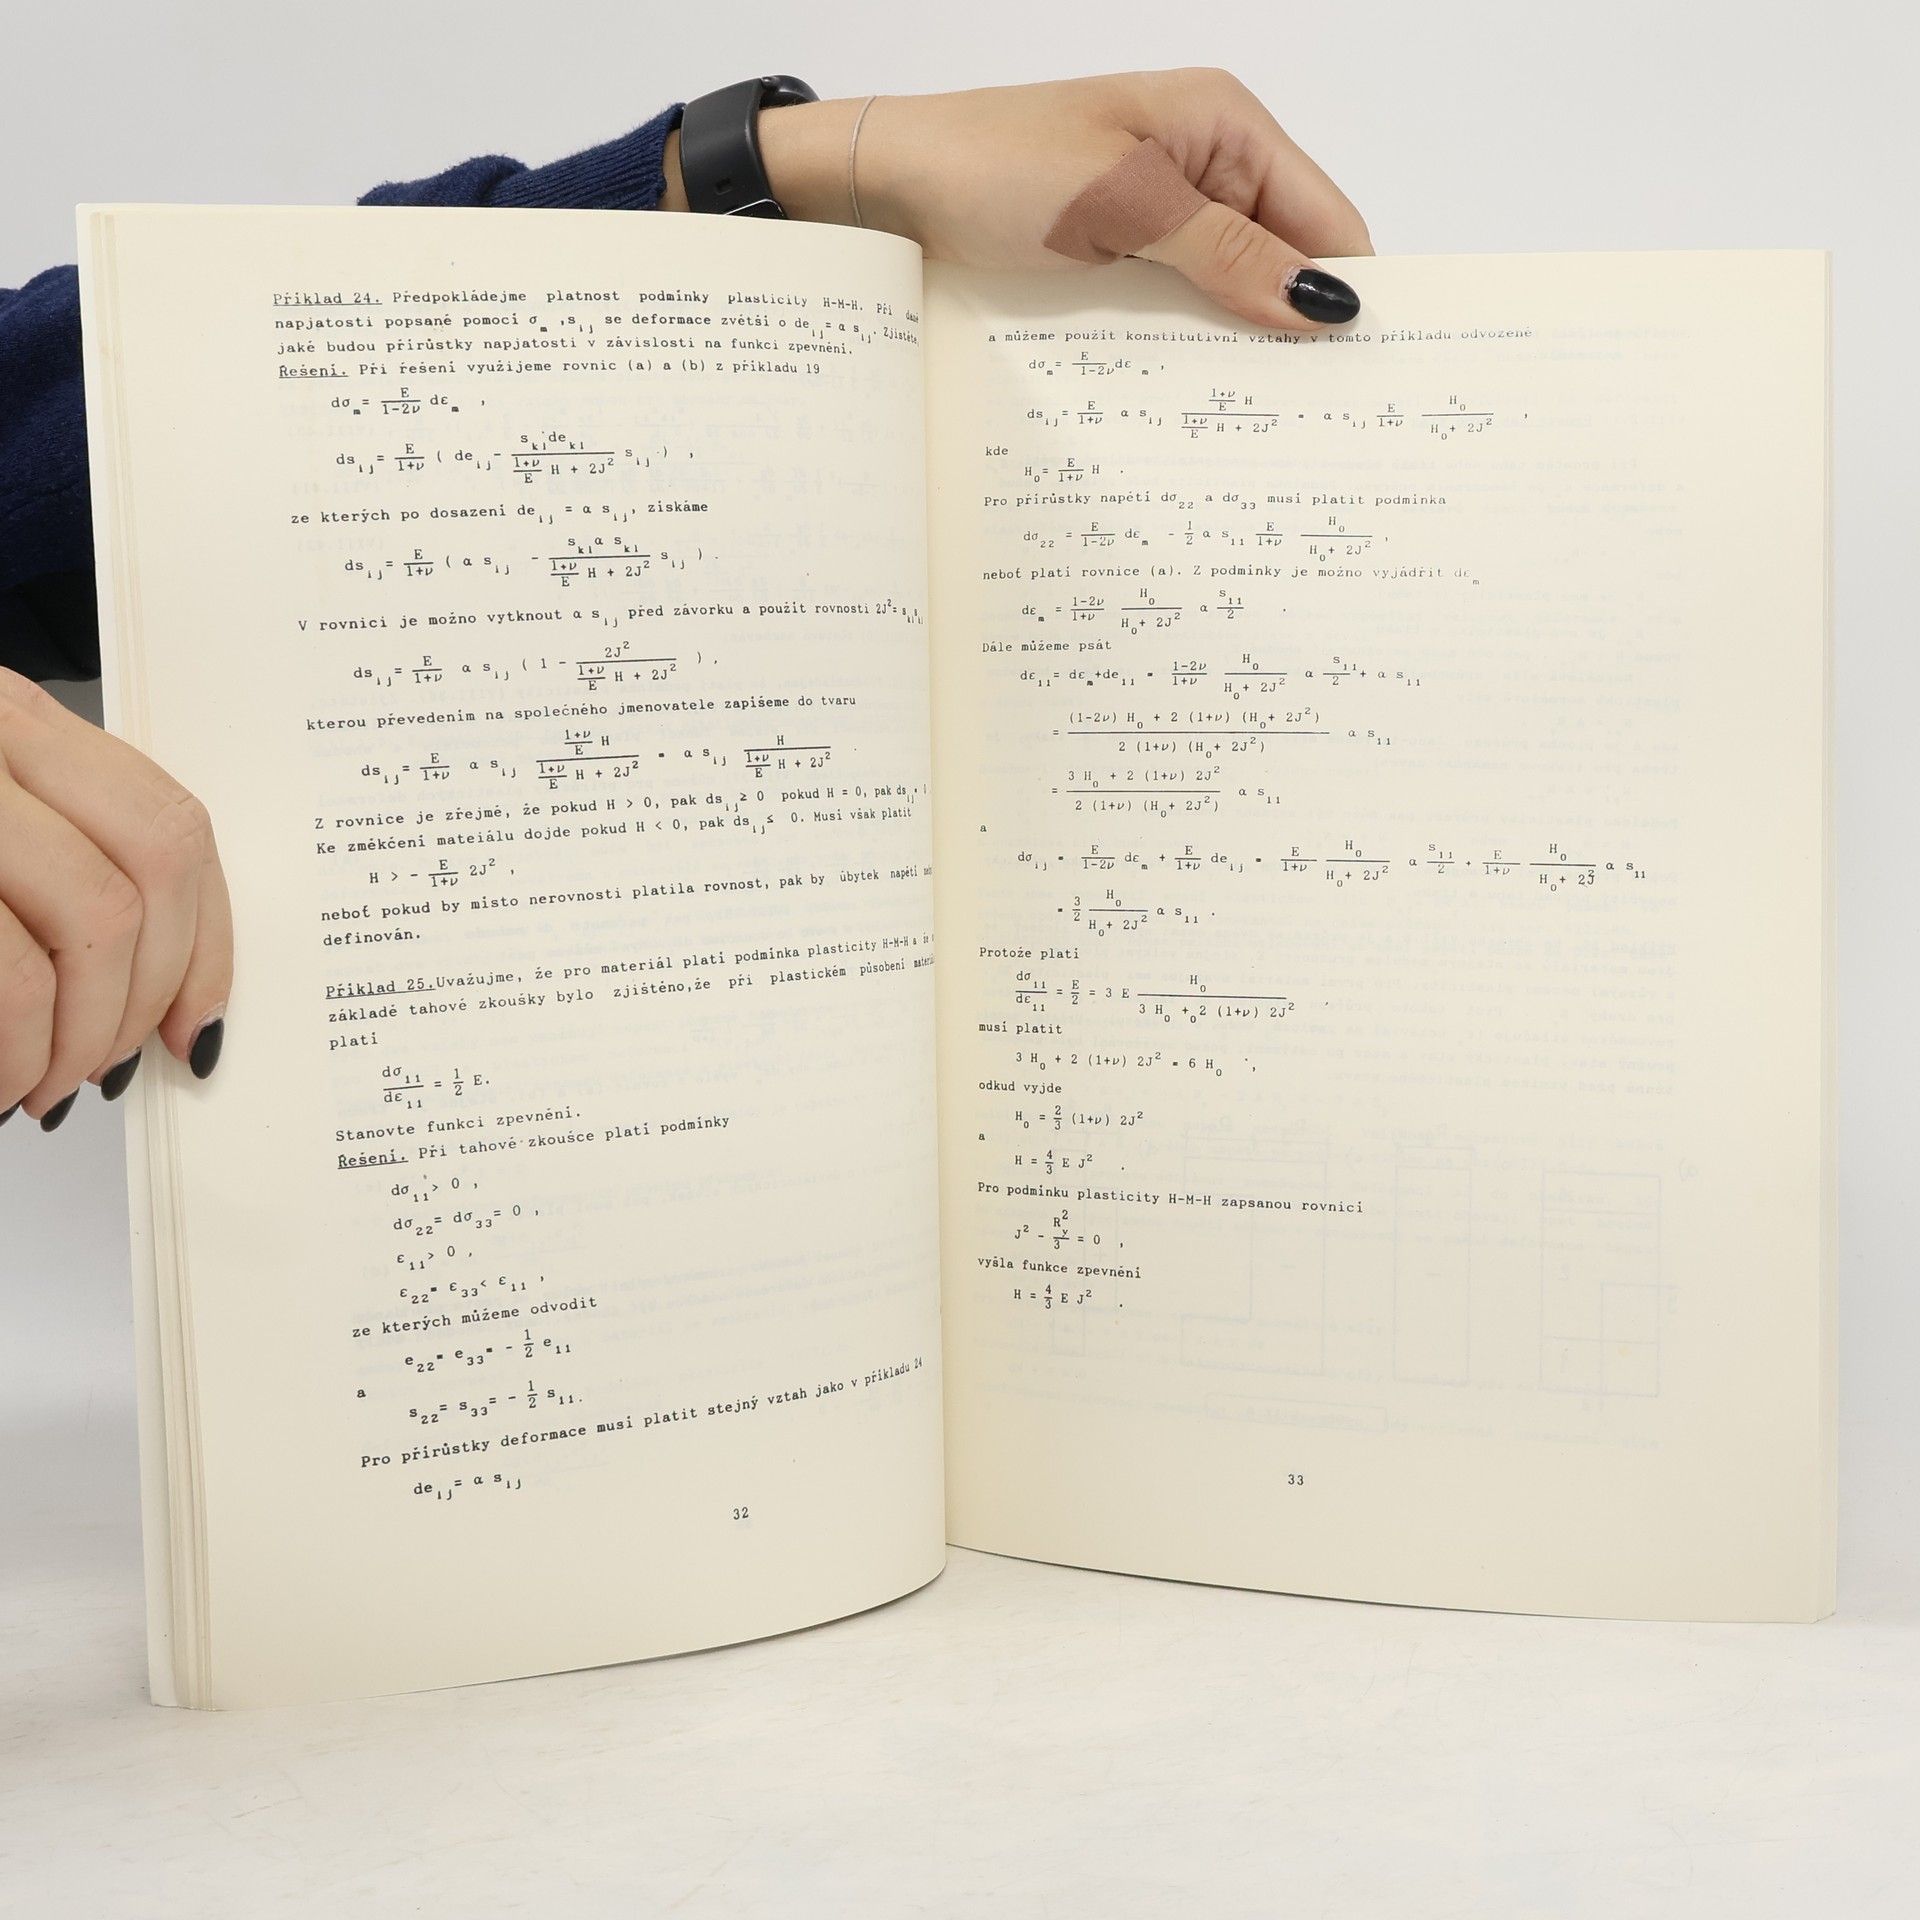 Příklad 24. Předpokládejme platnost podmínky plasticity H-M-H. Při dané
napjatosti popsané pomocí σ_m ,s_ij se deformace zvětší o de_ij= α s_ij. Zjistěte,
jaké budou přírůstky napjatosti v závislosti na funkci zpevnění.
Řešení. Při řešení využijeme rovnic (a) a (b) z příkladu 19
dσ_m= E/(1-2ν) dε_m ,
ds_ij= E/(1+ν) ( de_ij- (s_kl de_kl)/((1+ν)/E H + 2J²) s_ij ) ,
ze kterých po dosazení de_ij = α s_ij, získáme
ds_ij= E/(1+ν) ( α s_ij - (s_kl α s_kl)/((1+ν)/E H + 2J²) s_ij ) .
V rovnici je možno vytknout α s_ij před závorku a použít rovnosti 2J²= s_kl s_kl
ds_ij= E/(1+ν) α s_ij ( 1 - 2J²/((1+ν)/E H + 2J²) ) ,
kterou převedením na společného jmenovatele zapíšeme do tvaru
ds_ij= E/(1+ν) α s_ij ((1+ν)/E H)/((1+ν)/E H + 2J²) = α s_ij H/((1+ν)/E H + 2J²) .
Z rovnice je zřejmé, že pokud H > 0, pak ds_ij≥ 0 pokud H = 0, pak ds_ij=
Ke změkčení mateiálu dojde pokud H < 0, pak ds_ij≤ 0. Musí však platit
H > - E/(1+ν) 2J² ,
neboť pokud by místo nerovnosti platila rovnost, pak by úbytek napětí
definován.
Příklad 25.Uvažujme, že pro materiál platí podmínka plasticity H-M-H a že
základě tahové zkoušky bylo zjištěno,že při plastickém působení
platí
dσ_11/dε_11 = 1/2 E.
Stanovte funkci zpevnění.
Řešení. Při tahové zkoušce platí podmínky
dσ_11> 0 ,
dσ_22= dσ_33= 0 ,
ε_11> 0 ,
ε_22= ε_33< ε_11 ,
ze kterých můžeme odvodit
e_22= e_33= - 1/2 e_11
a
s_22= s_33= - 1/2 s_11.
Pro přírůstky deformace musí platit stejný vztah jako v příkladu 24
de_ij= α s_ij
32
a můžeme použít konstitutivní vztahy v tomto příkladu odvozené
dσ_m= E/(1-2ν) dε_m ,
ds_ij= E/(1+ν) α s_ij ((1+ν)/E H)/((1+ν)/E H + 2J²) = α s_ij E/(1+ν) H_0/(H_0+ 2J²) ,
kde
H_0= E/(1+ν) H .
Pro přírůstky napětí dσ_22 a dσ_33 musí platit podmínka
dσ_22 = E/(1-2ν) dε_m - 1/2 α s_11 E/(1+ν) H_0/(H_0+ 2J²) ,
neboť platí rovnice (a). Z podmínky je možno vyjádřit dε_m
dε_m = (1-2ν)/(1+ν) H_0/(H_0+ 2J²) α s_11/2 .
Dále můžeme psát
dε_11= dε_m+de_11 = (1-2ν)/(1+ν) H_0/(H_0+ 2J²) α s_11/2 + α s_11
= ((1-2ν) H_0 + 2 (1+ν) (H_0+ 2J²))/(2 (1+ν) (H_0+ 2J²)) α s_11
= (3 H_0 + 2 (1+ν) 2J²)/(2 (1+ν) (H_0+ 2J²)) α s_11
a
dσ_ij = E/(1-2ν) dε_m + E/(1+ν) de_ij = E/(1+ν) H_0/(H_0+ 2J²) α s_11/2 + E/(1+ν) H_0/(H_0+ 2J²) α s_11
= 3/2 H_0/(H_0+ 2J²) α s_11 .
Protože platí
dσ_11/dε_11 = E/2 = 3 E H_0/(3 H_0 +_0 2 (1+ν) 2J²) ,
musí platit
3 H_0 + 2 (1+ν) 2J² = 6 H_0 ,
odkud vyjde
H_0 = 2/3 (1+ν) 2J²
a
H = 4/3 E J² .
Pro podmínku plasticity H-M-H zapsanou rovnicí
J² - R_y²/3 = 0 ,
vyšla funkce zpevnění
H = 4/3 E J² .
33